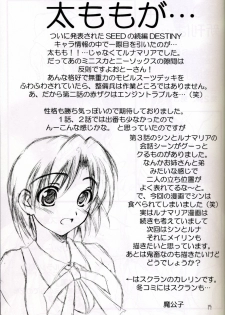 太ももが…
ついに発表されたSEEDの続編DESTINY
キャラ情報の中で一際目を引いたのが…
もも！！…じゃなくてルナマリアでした。
だってあのミニスカとニーソックスの隙間は
反則ですよおとーさん！
あんな格好で無重力のモビルスーツデッキを
ふわふわされていたら、整備兵は作業どころではありません。
あ、だから第二話の赤ザクはエンジントラブルに…（笑）
性格も勝ち気っぽいので期待しておりました。
1話、2話では出番も少なかったので
んーこんな感じかな。と思っていたのですが
第3話のシンとルナマリアの
会話シーンがグーッと
クるものがありました。
なんかお姉さんと弟
みたいな感じで
二人の立ち位置が
よく表れてるな～と。
で、今回の漫画でシンは
食べられてしまいました（笑）
実はルナマリア漫画は
続きも考えていまして
次回はシンとルナ
それにメイリンも
描きたいと思っています。
あとは鬼畜なのも描きたいけど
どうでしょうか？
←はスクランのカレリンです。
冬コミにはスクランも出ます。
魔公子